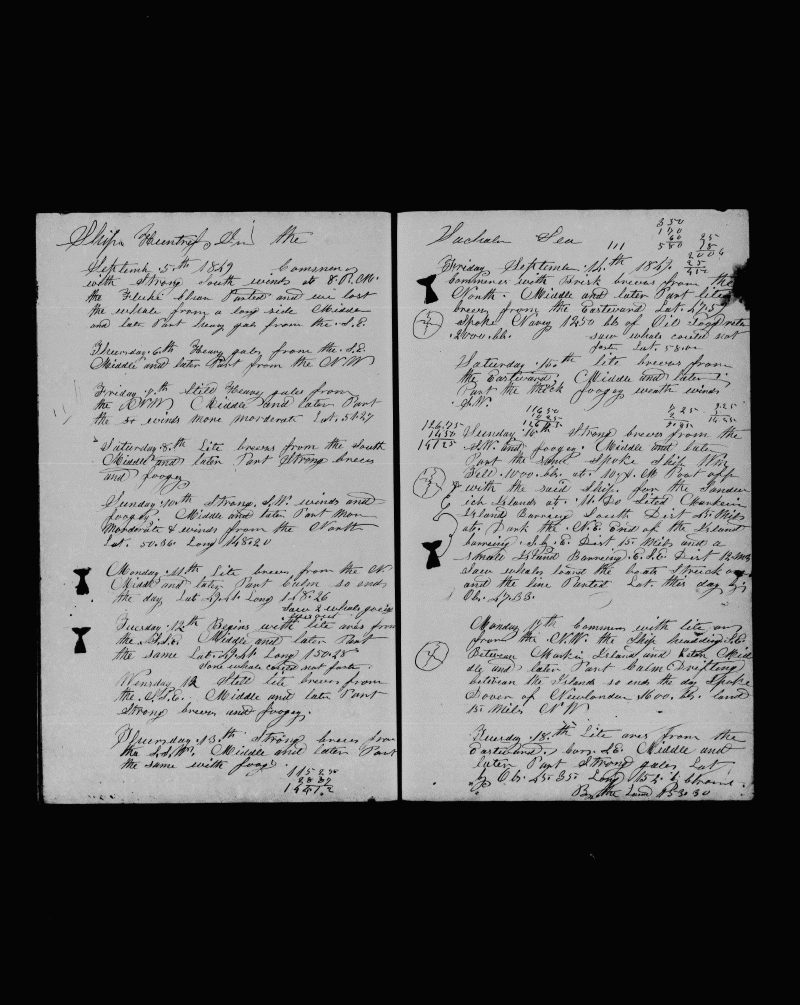 Ship Huntress In the
Septemb 5th 1849 Commenc
with Strong South winds at 8. P.M.
the Fluke Chian Parted and we lost
the whale from a long side Middle
and late Part heavy gals from the S.E
Thursday 6th Heavy gales frome the S.E
Middle and later Part from the N.W
Friday 7th Still Heavy gales from
the N.W Middle and later Part
the winds more morderate Lat. 51.27
Saturday 8th Lite brezes from the South
Middle and later Part Strong brezes
and foogy
Sunday 10th Strong S.W. winds and
foogy. Middle and later Part mor
morderate & winds from the North
Lat. 50.36 Long 148.20
Monday 11th Lite brezes from the N
Middl and later Part Calm so ends
the day Lat Long 148.26
Saw 2 whals going
Tuesday 12th Begins with lite ares from
the S.S.E. Middle and later Part
the same Lat. Long 150.48
Saw whale could not fasten
Wensday 12 Still lite brezes from
the S.S.E. Middle and later Part
Strong brezes and foogey.
Thursday 13th Strong brezes from
the S.S.W. Middle and later Part
the same with foog.
Sea
111
350
170
60
580
Friday September 14th
Commences with Brisk brezes from the
North. Middle and later Part lite
brezes from the Eastward Lat. 47.5
Spoke Navy 1250 bbs of Oil
2000 bb. saw whale could not
fast Lat. 58.00
Saturday 15th lite brezes from
the Eastward. Middle and later
Part the thick foogey weath winds
S.W.
Sunday 16th Strong brezes from the
S.W. and foogey. Middle and late
Part the same Spoke Ship Wm
Tell 1000 bb. at 10 A.M Part
with the said Ship for the Sandw
ich Islands at 11.30 Sited
Island Barring South Dist 25 Mils
at. Dark the N.E End of the Island
barring S.b.E. Dist 15 Mils and a
smale Island Barring E.S.E. Dist 12 mils
Saw whales lowed the boats Struck one
and the line Parted Lat. this day by
Ob. 47.33.
Monday 17th Commen with lite
from the N.W. the Ship heading S.E.
Between Island and Midd
le and later Part Calm Drifting
between the Islands so ends the day Spoke
Dover of Newlonden 1600 bb. land
15 Mils N.W
Tuesday 18th Lite ares from the
Eastward. S.E. Middle and
later Part Strong gales Lat
by Ob. 45.35 Long
By the Land 153.30